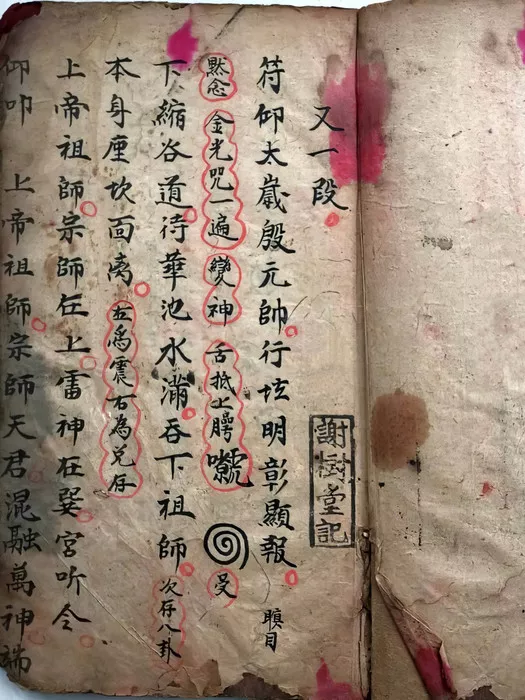 又一段
謝樹堂記
符仰太歲殷元帥行壇明彰顯報 瞋目
黙念 金光咒一遍 變神 舌抵上腭 受
下縮谷道待華池水滿吞下祖師 次存八卦
本身座坎面离 左為震右為兌存
上帝祖師宗師在上雷神在巽宮听令
仰叩 上帝祖師宗師天君混融萬神端